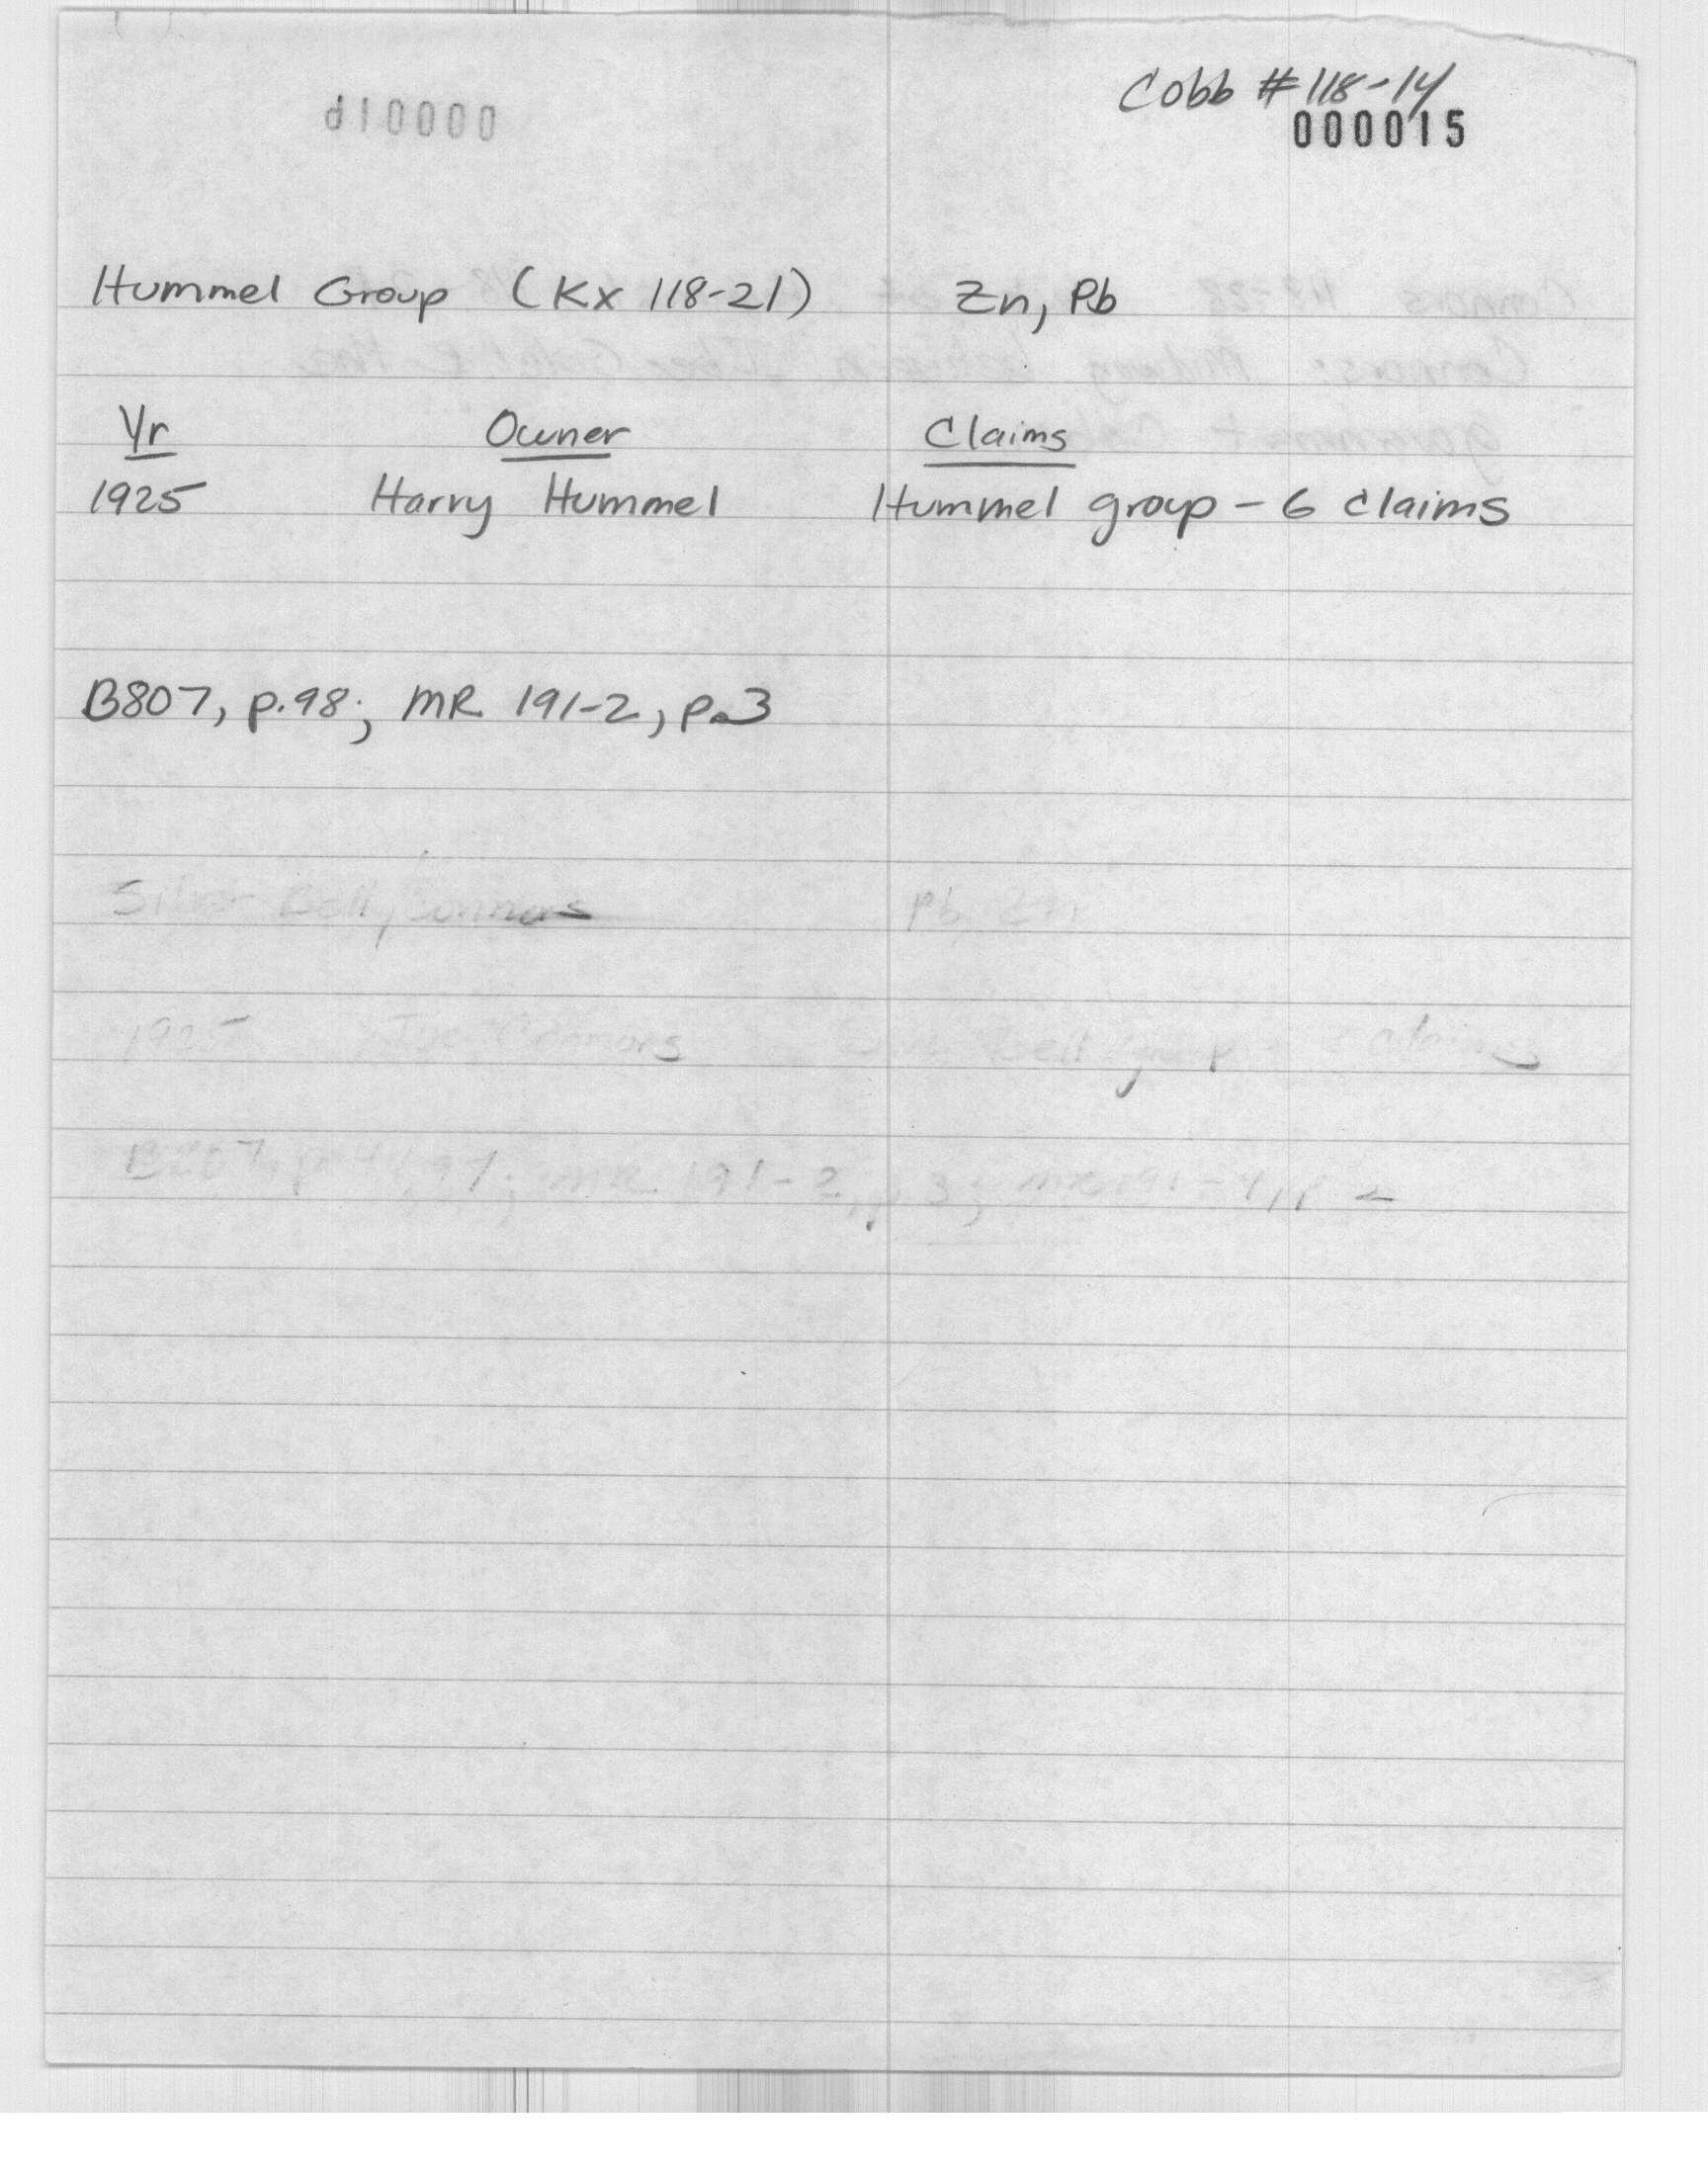 Cobb # 118-14
000015
Hummel Group (Kx 118-21) Zn, Pb
Yr Owner Claims
1925 Harry Hummel Hummel group - 6 claims
B807, p.98; MR 191-2, p.3
Silver Bell, Connors Pb, Zn
1925 Joe Connors Bell group claims
B807, MR 191-2, p 3; MR 191-4, p